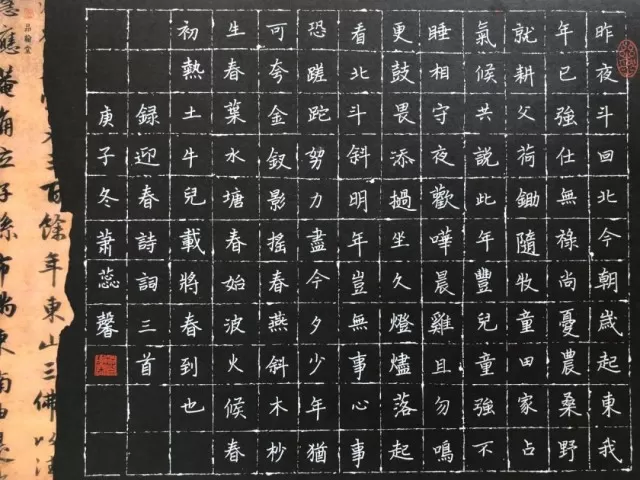 昨夜斗回北今朝歲起東我
年已強仕無祿尚憂農桑野
就耕父荷鋤隨牧童田家占
氣候共說此年豐兒童強不
睡相守夜歡嘩晨雞且勿鳴
更鼓畏添撾坐久燈燼落起
看北斗斜明年豈無事心事
恐蹉跎努力盡今夕少年猶
可夸金釵影搖春燕斜木杪
生春葉水塘春始波火候春
初熱土牛兒載將春到也
録迎春詩詞三首
庚子冬萧蕊馨
百餘年東山三佛
應菴角立子孫布滿東南